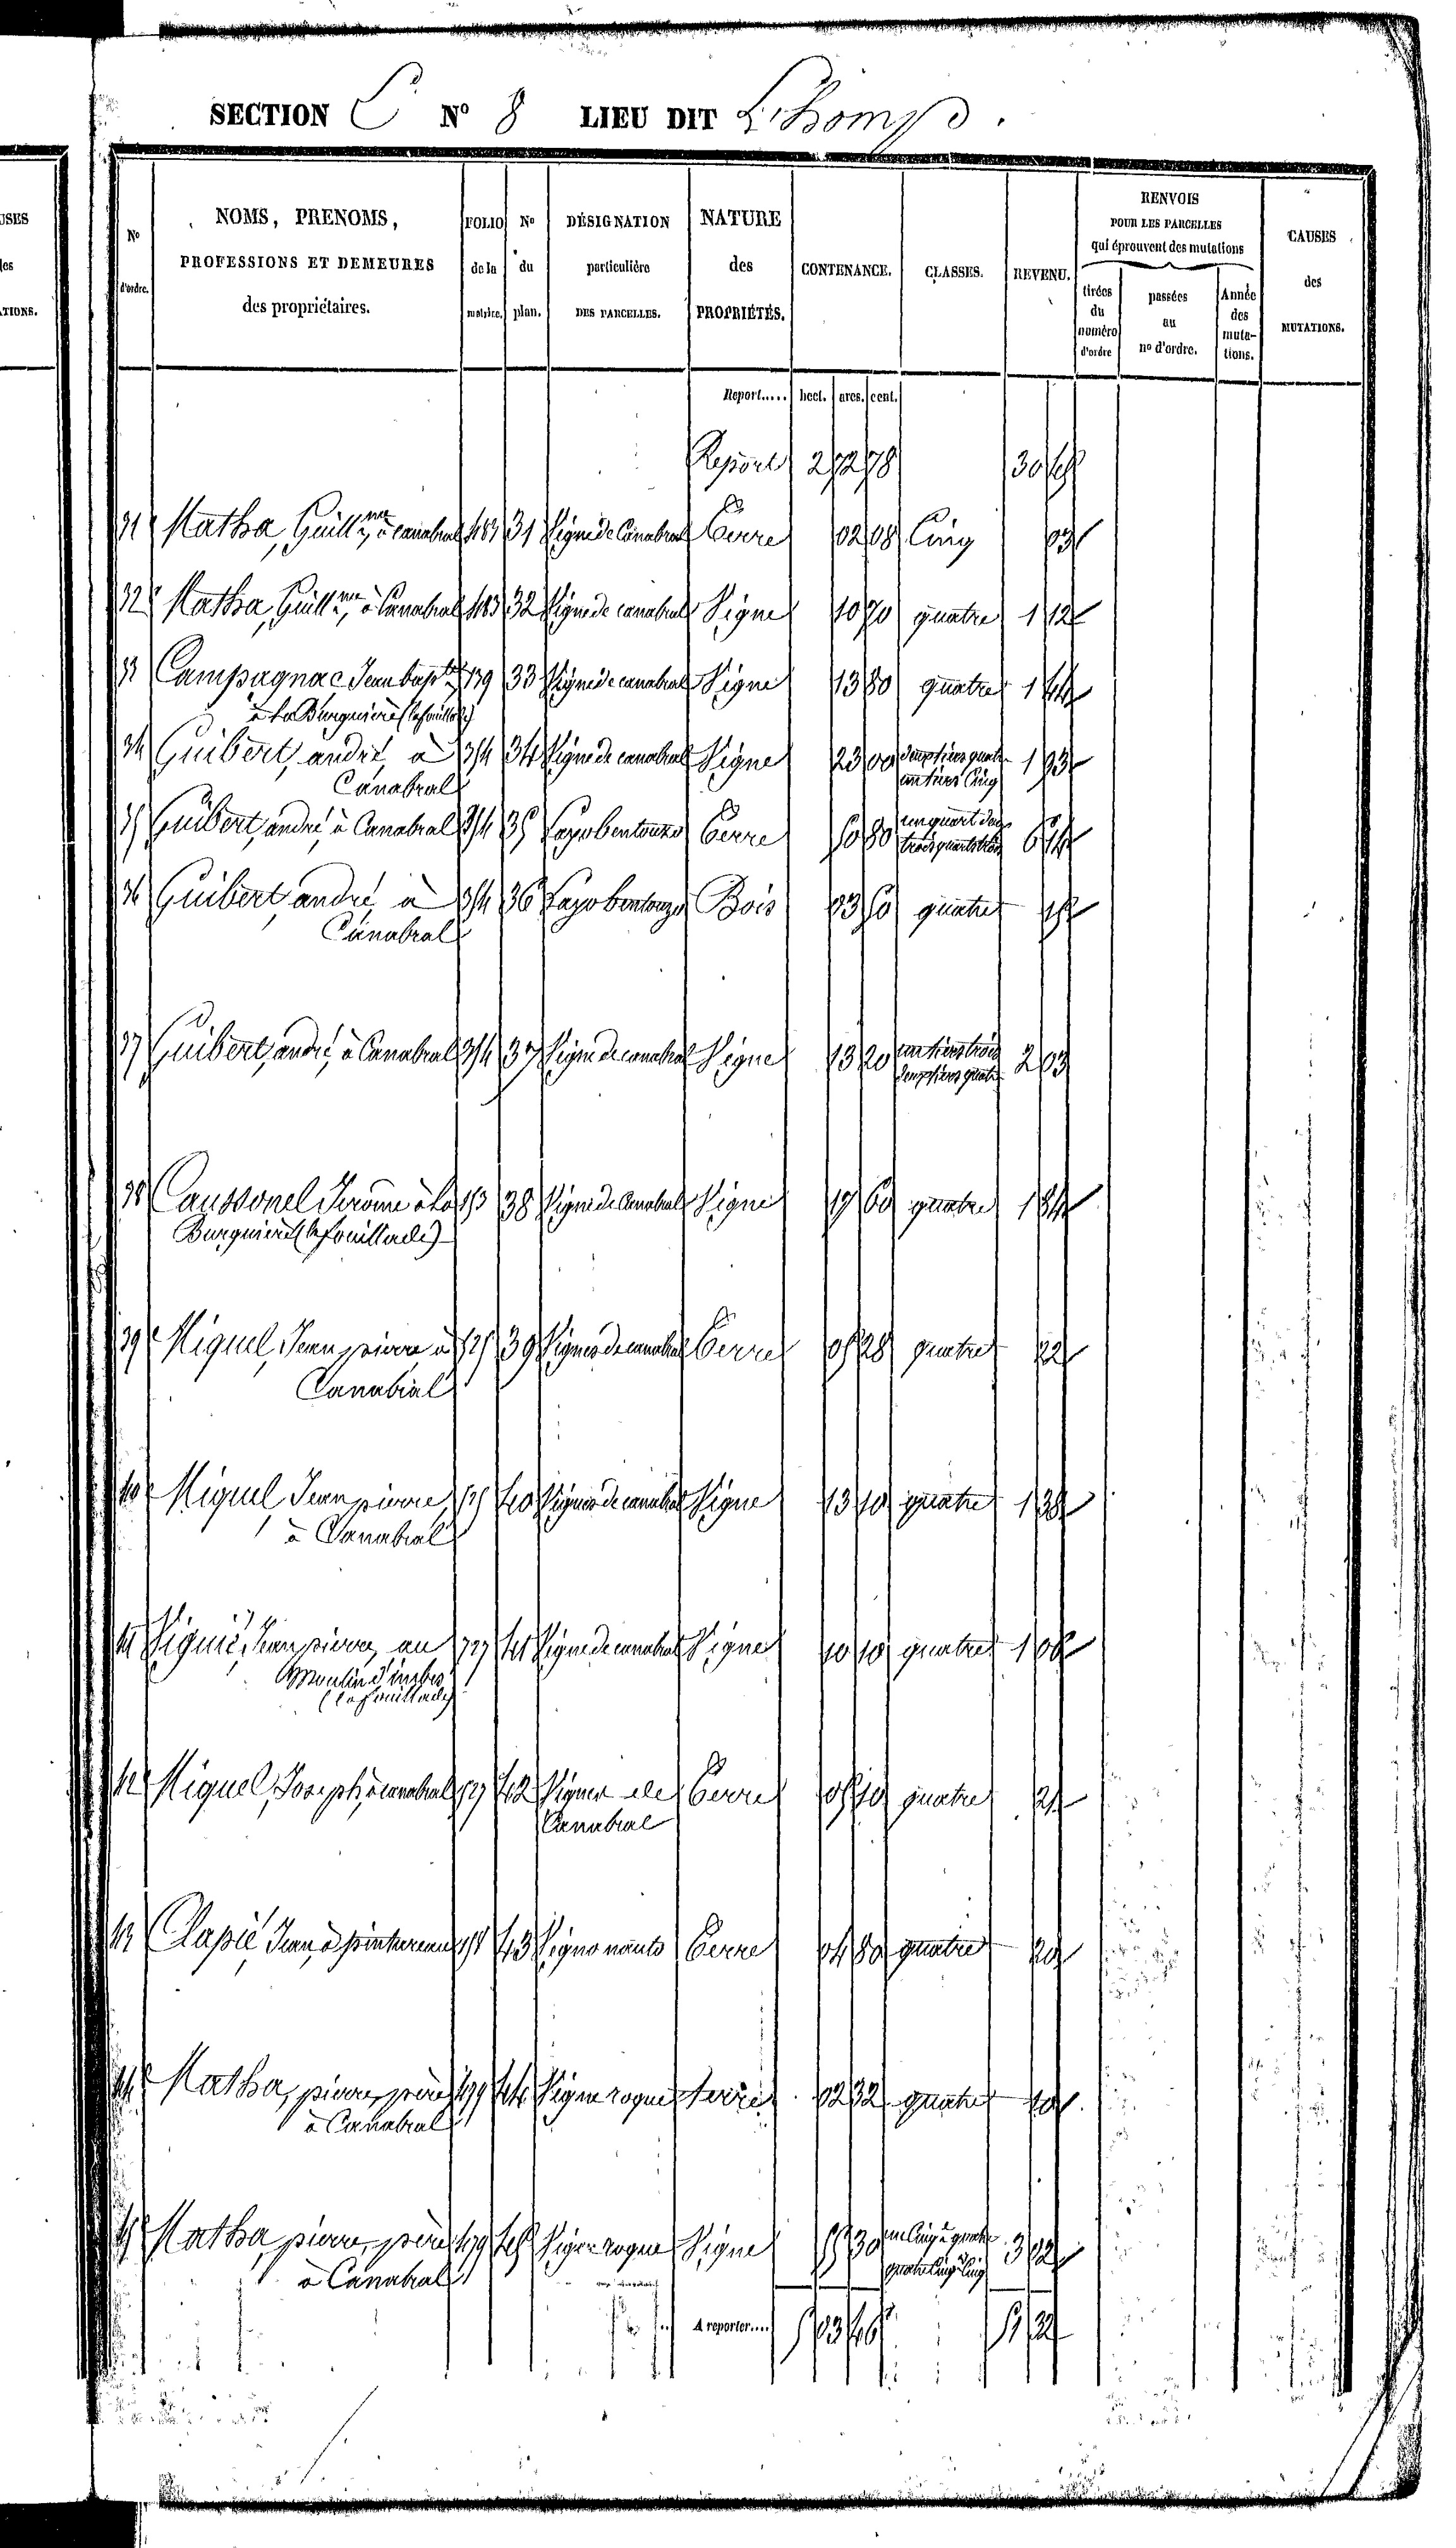 SECTION C N° 8 LIEU DIT
USES
des
ATIONS.
N° d'ordre.
NOMS, PRENOMS, PROFESSIONS ET DEMEURES des propriétaires.
FOLIO de la matrice.
N° du plan.
DÉSIGNATION particulière DES PARCELLES.
NATURE des PROPRIÉTÉS.
CONTENANCE.
CLASSES.
REVENU.
RENVOIS POUR LES PARCELLES qui éprouvent des mutations
tirées du numéro d'ordre
passées au n° d'ordre.
Année des muta-tions.
CAUSES des MUTATIONS.
Report..... hect. ares. cent.
Report 2 72 78 30
31 Matha, Guillme, à Canabral 483 31 Vigne de Canabral Terre 02 08 Cinq 03
32 Matha, Guillme, à Canabral 483 32 Vigne de canabral Vigne 10 70 quatre 1 12
33 Campagnac Jean bapte 139 33 Vigne de canabral Vigne 13 80 quatre 1 44
à La Burguiere (lafouillade)
34 Guibert, andré, à 314 34 Vigne de canabral Vigne 23 00 deux tiers quatre 1 93
Canabral un tiers Cinq
35 Guibert, andré, à Canabral 314 35 Terre 80 un quart deux
trois quarts trois
36 Guibert, andré à 314 36 Bois 03 60 quatre
Canabral
37 Guibert, andré, à Canabral 314 37 Vigne de canabral Vigne 13 20 un tiers trois 2 03
deux tiers quatre
38 Caussonel Jerome à La 153 38 Vigne de Canabral Vigne 17 60 quatre 1 84
Burguiere (lafouillade)
39 Miquel, Jean pierre à 525 39 Vignes de canabral Terre 05 28 quatre 22
Canabral
40 Miquel, Jean pierre, 525 40 Vignes de canabral Vigne 13 10 quatre 1 38
à Canabral
41 Viguié, Jean pierre, au 727 41 Vigne de canabral Vigne 10 10 quatre 1 06
Moulin
(lafouillade)
42 Miquel, Joseph, à canabral 527 42 Vignes de Terre 05 10 quatre 21
Canabral
43 Clapié, Jean, à 43 Terre 04 80 quatre 20
44 Matha, pierre, père 479 44 Vigne rogue terre 02 32 quatre 10
à Canabral
45 Matha, pierre, père 479 45 Vigne rogue Vigne 55 30 un Cinq.e quatre 3 02
à Canabral quatre Cinq.e Cinq
A reporter.... 5 03 46 51 32